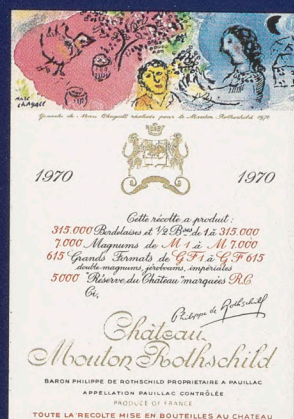 MARC CHAGALL
Gouache de Marc Chagall réalisée pour le Mouton Rothschild 1970
1970 1970
Cette récolte a produit :
315.000 Bordelaises et ½ Bses de 1 à 315.000
7.000 Magnums de M 1 à M 7.000
615 Grands Formats de G F 1 à G F 615
double magnums, jéroboams, impériales
5000 "Réserve du Château" marquées R.C.
Ci,
Philippe de Rothschild
Château
Mouton Rothschild
BARON PHILIPPE DE ROTHSCHILD PROPRIETAIRE A PAUILLAC
APPELLATION PAUILLAC CONTRÔLÉE
PRODUCE OF FRANCE
TOUTE LA RÉCOLTE MISE EN BOUTEILLES AU CHÂTEAU